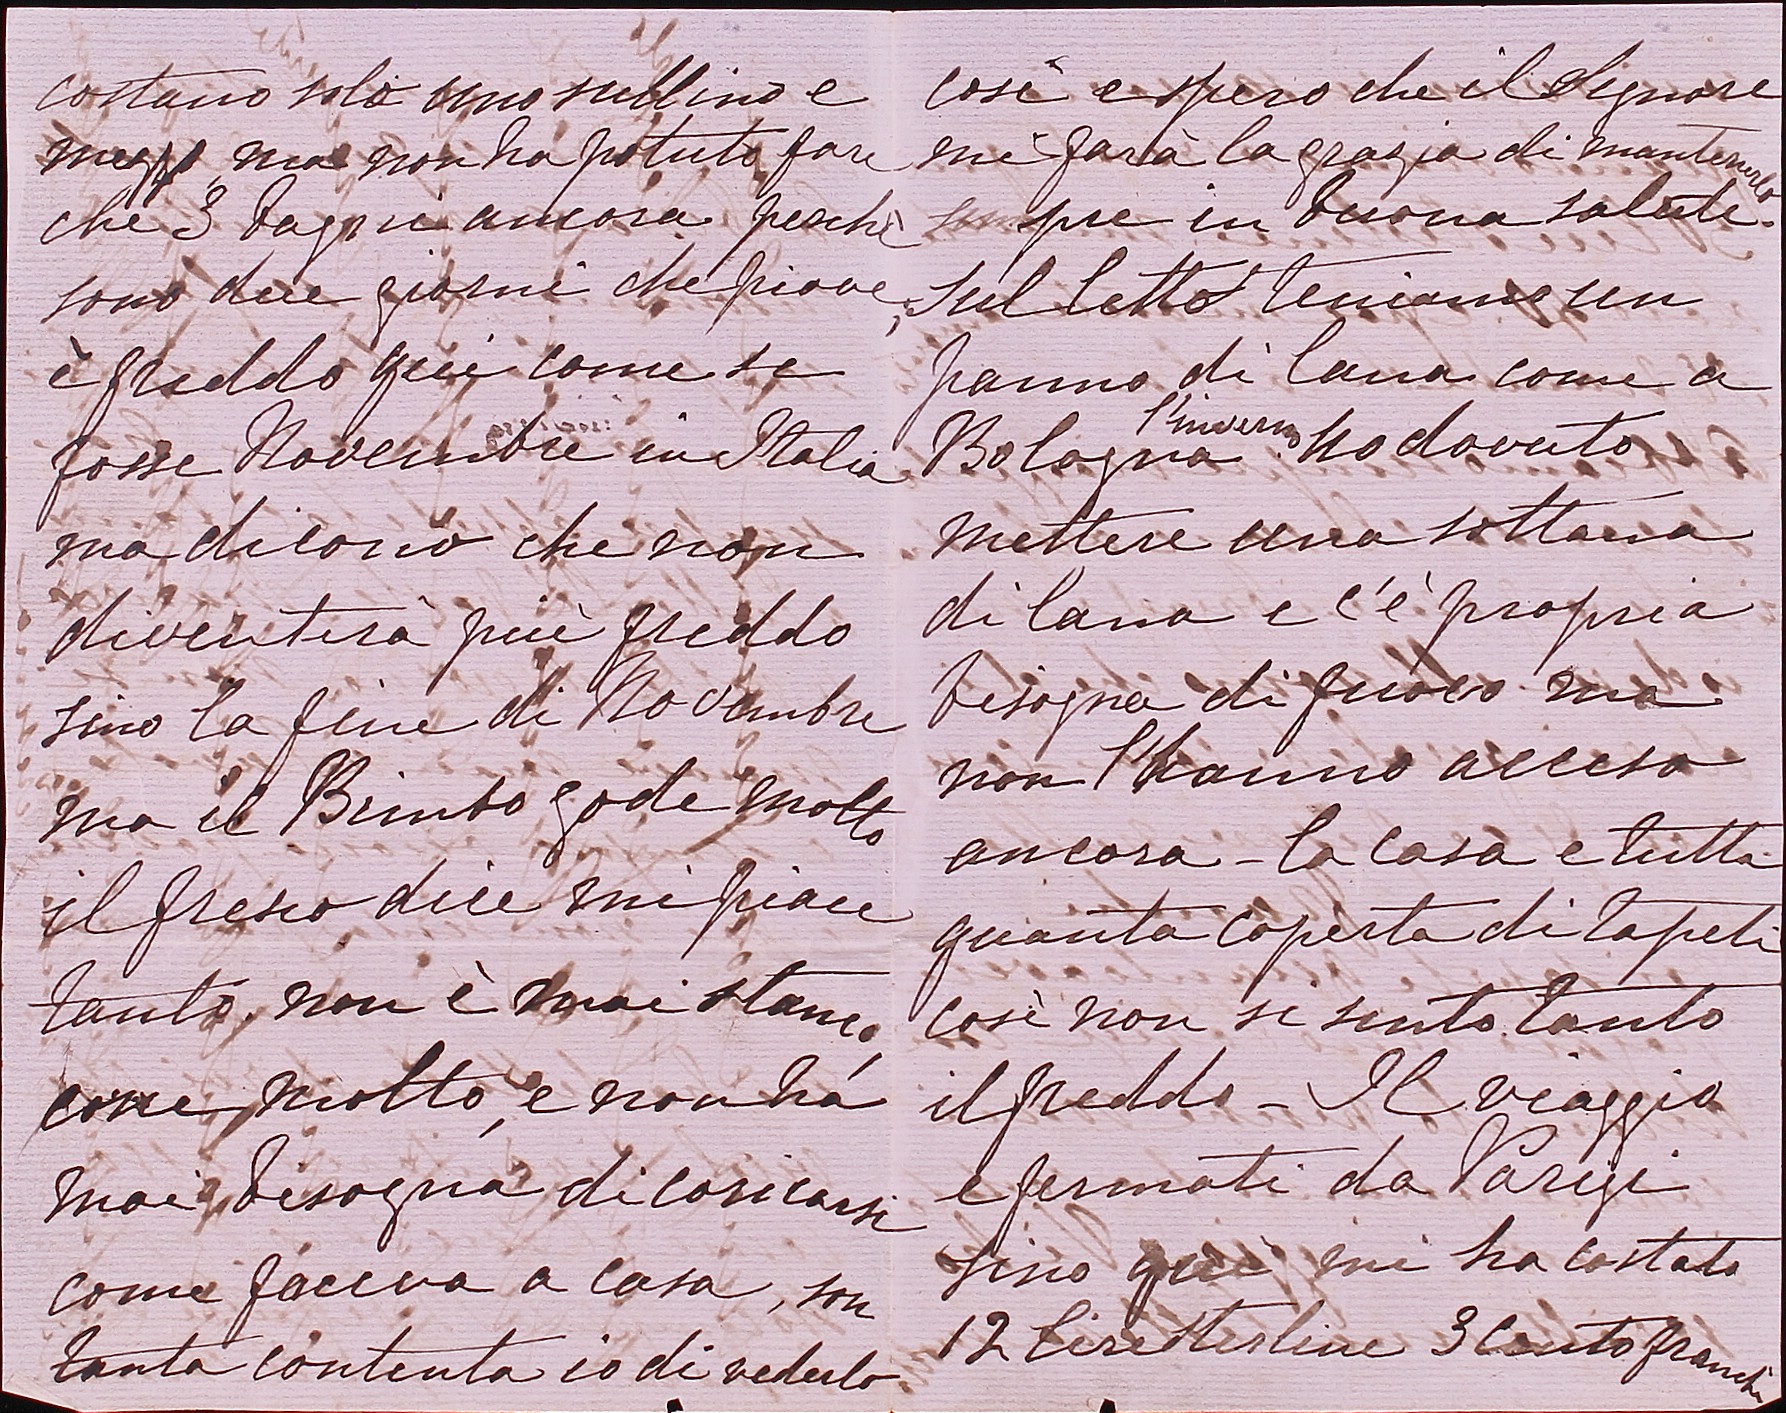 costano solo uno scellino e
mezzo, ma non ha potuto fare
che 3 bagni ancora perchè
sono due giorni che piove,
è freddo qui come se
fosse Novembre in Italia
ma dicono che non
diventerà più freddo
sino la fine di Novembre
ma il Bimbo gode molto
il fresco dice mi piace
tanto. non è mai stanco,
corre molto, e non há
mai bisogna di coricarsi
come faceva a casa, son
tanta contenta io di vederlo
così e spero che il Signore
mi farà la grazia di mantenerlo
sempre in buona salute.
sul letto teniamo un
panno di lana come a
Bologna l'inverno ho dovuto
mettere una sottana
di lana e c'è propria
bisogna di fuoco ma
non l'hanno acceso
ancora - la casa e tutta
quanta coperta di tapeti
così non si sento tanto
il freddo - Il viaggio
e fermati da Parigi
sino qui mi ha costato
12 Lire Sterline 3 Cento franchi